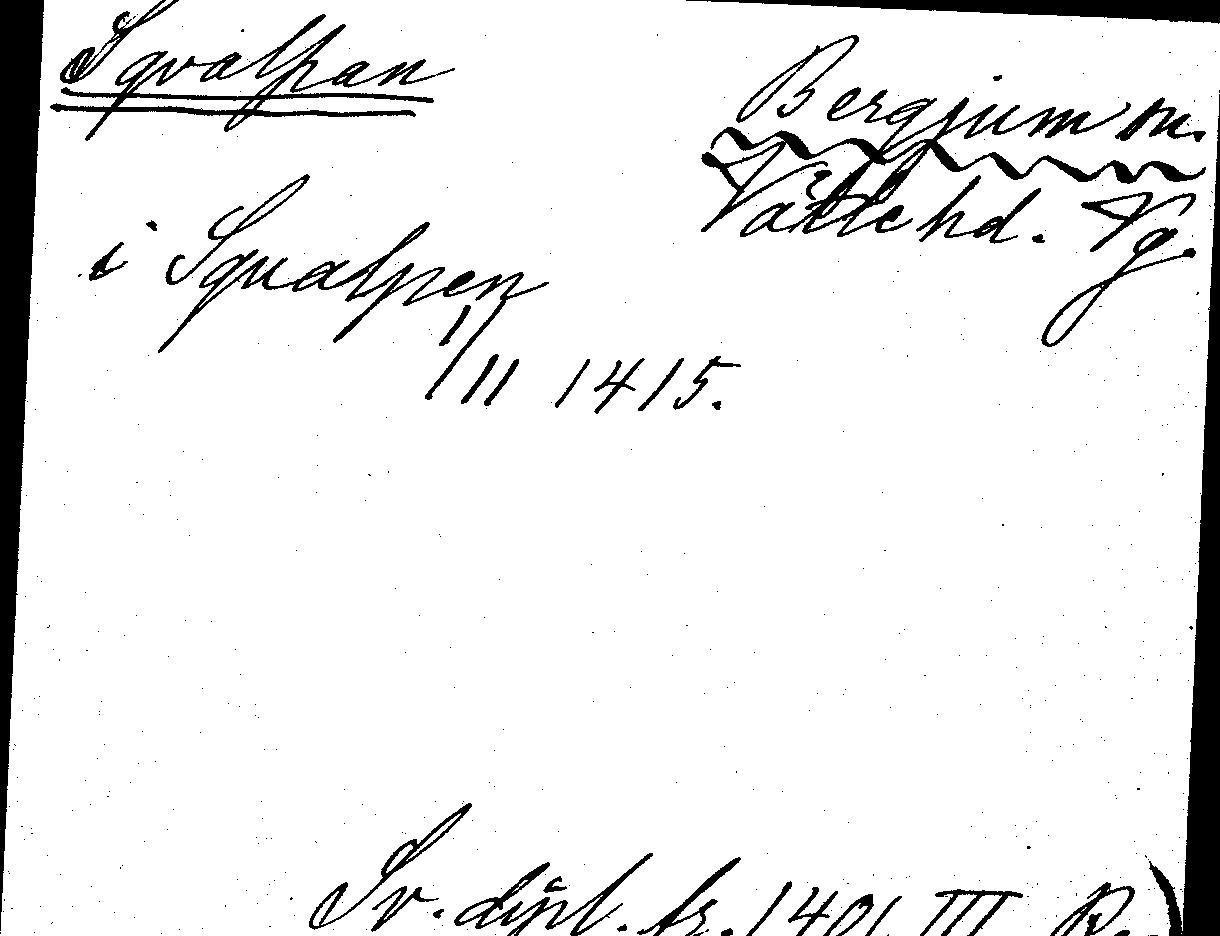 Sqvalpan
Bergjum sn.
Vättle hd. Vg.
i Squalpen
1/11 1415.
Sv. dipl. fr. 1401 III